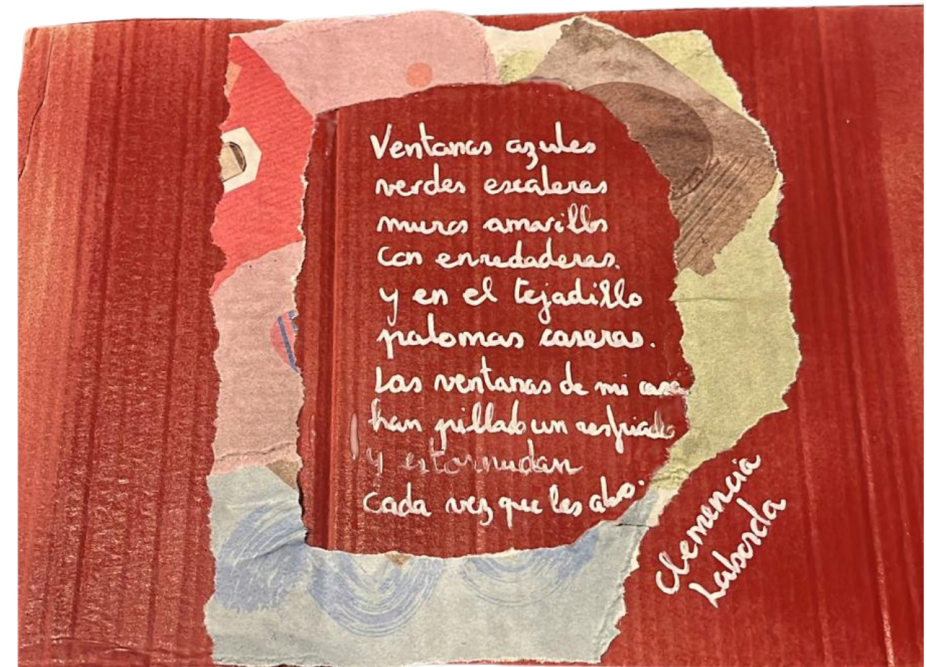 Ventanas azules
verdes escaleras
muros amarillos
con enredaderas.
y en el tejadillo
palomas caseras.
Las ventanas de mi casa
han pillado un resfriado
y estornudan
cada vez que las abro.
Clemencia
Laborda